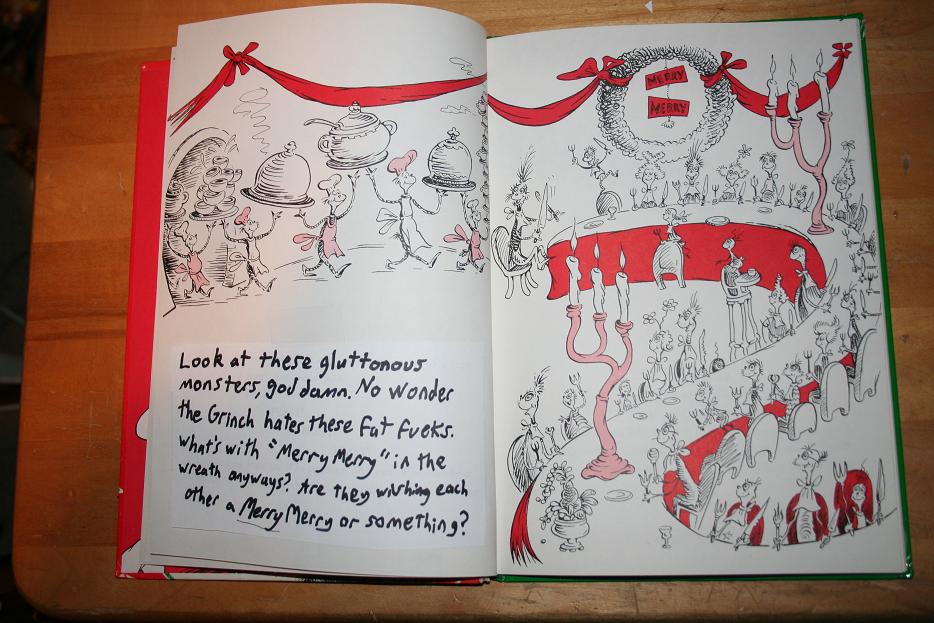 Look at these gluttonous
monsters, god damn. No wonder
the Grinch hates these fat fucks.
What's with "Merry Merry" in the
wreath anyways? Are they wishing each
other a Merry Merry or something?
MERRY
MERRY